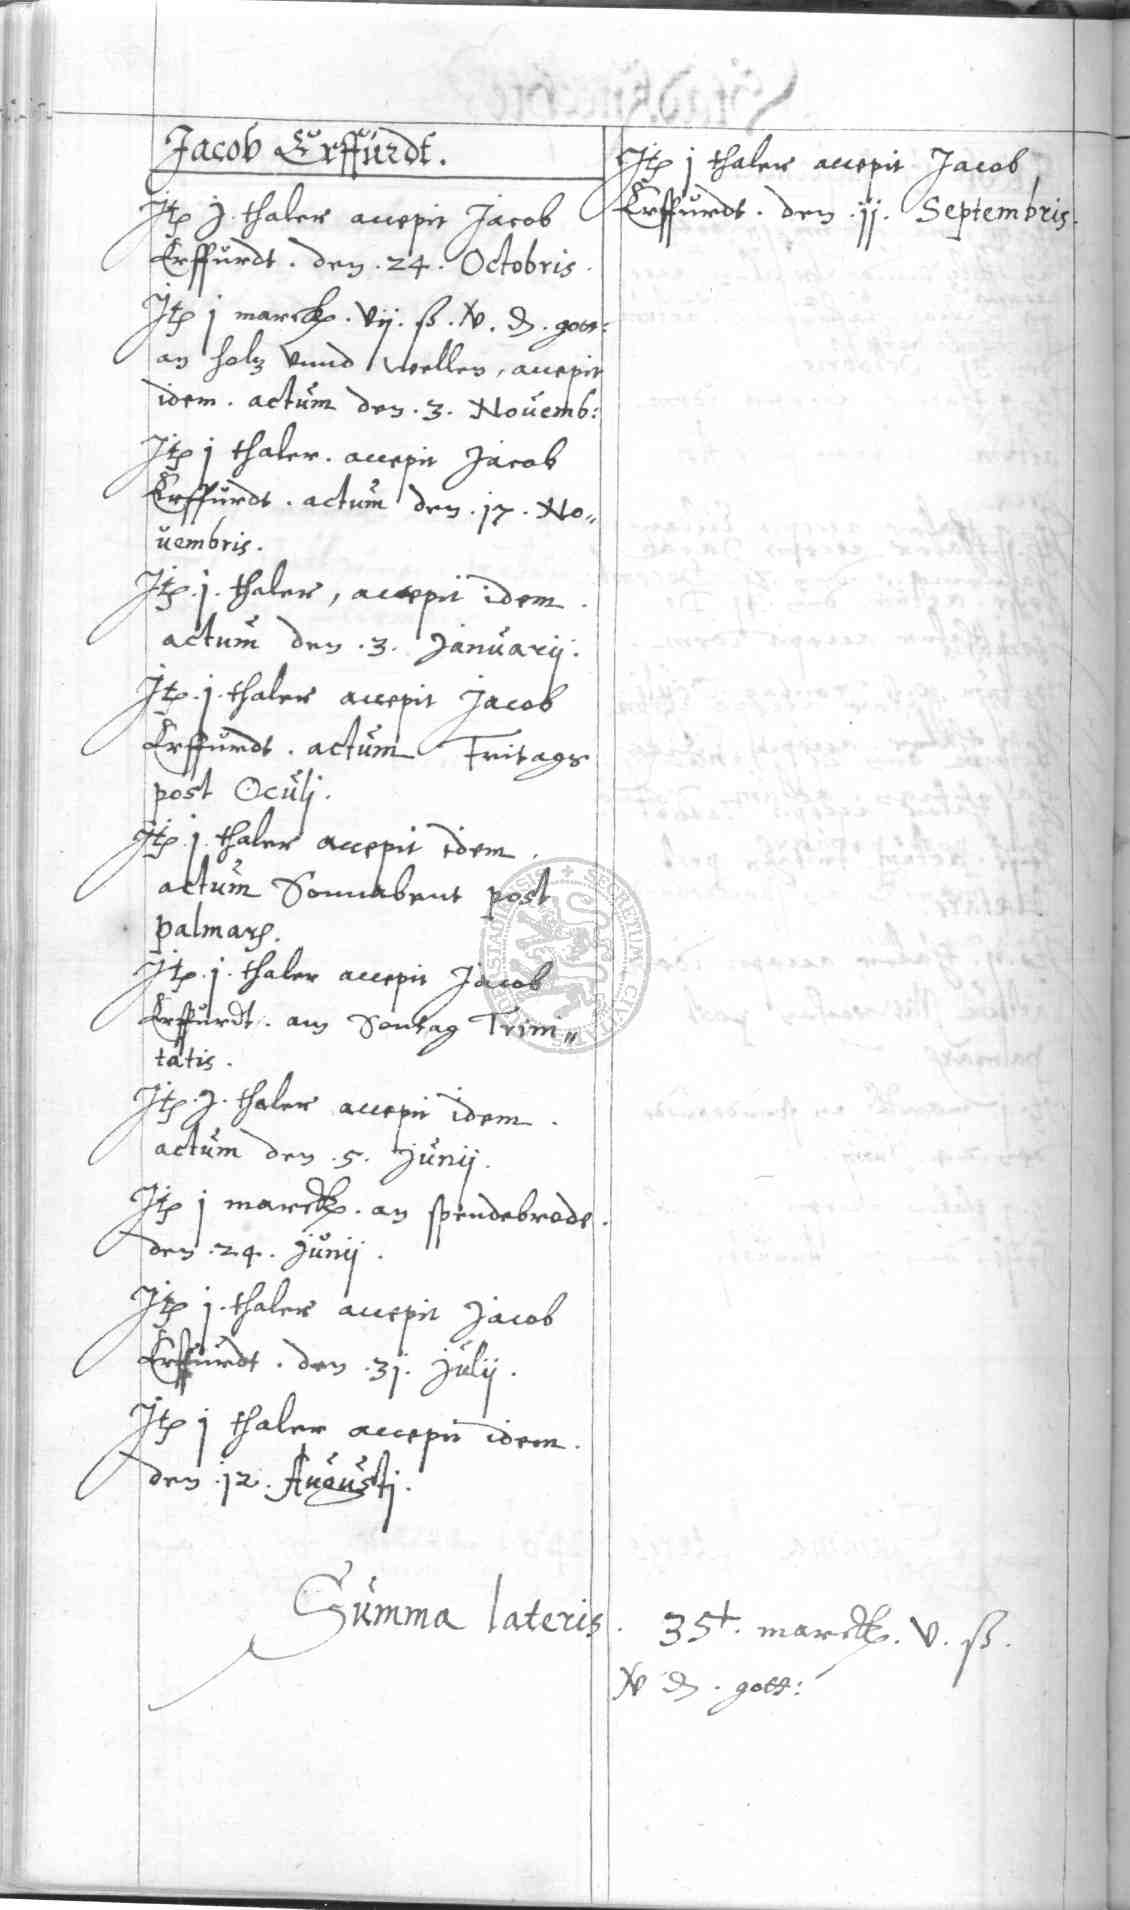 Jacob Erffurdt.
Jtem j. thaler accepit Jacob
Erffurdt. den .24. Octobris.
Jtem j marck. vij. ß. xv. d. gott:
an holtz vnnd wellen, accepit
idem. actum den .3. Nouemb:
Jtem j thaler. accepit Jacob
Erffurdt. actum den .17. No„
uembris.
Jtem .j. thaler, accepit idem.
actum den .3. Januarij.
Jtem .j. thaler accepit Jacob
Erffurdt. actum Fritags
post Oculj.
Jtem .j. thaler accepit idem.
actum Sonnabent post
palmarum.
Jtem .j. thaler accepit Jacob
Erffurdt. am Sontag Trini„
tatis.
Jtem .j. thaler accepit idem.
actum den .5. Junij.
Jtem j marck. an spendebrode.
den .24. Junij.
Jtem j. thaler accepit Jacob
Erffurdt. den .3j. Julij.
Jtem j thaler accepit idem.
den .j2. Augustj.
Jtem j thaler accepit Jacob
Erffurdt. den .jj. Septembris.
Summa lateris. 35. marck. v. ß.
xv d. gott:
SECRETUM CIVITATIS